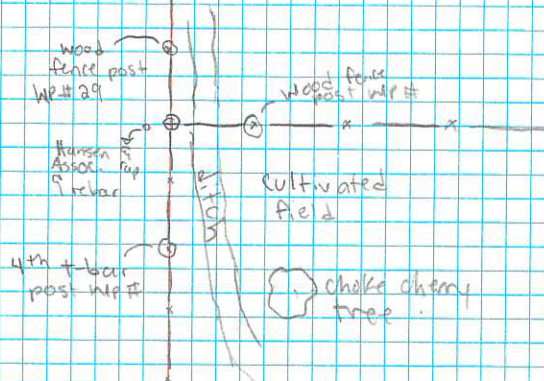 wood
fence post
WP# 29
wood fence
post WP #
Hansen &
Assoc. cap
& rebar
ditch
Cultivated
field
4th t-bar
post WP #
choke cherry
tree.